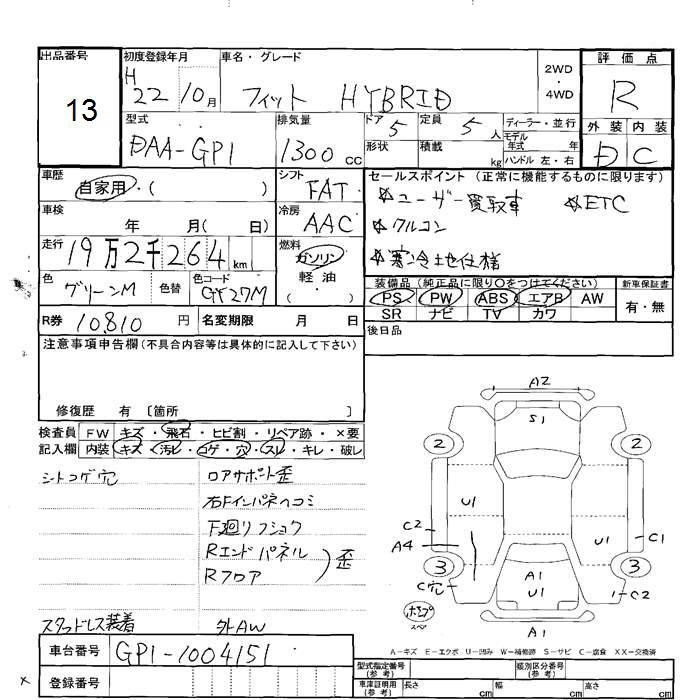 出品番号
13
初度登録年月
H
22 10月
車名・グレード
フィット HYBRID
2WD
・
4WD
評価点
R
外装 内装
D C
型式
DAA-GP1
排気量
1300 cc
ドア 5
定員 5 人
ディーラー・並行
モデル
年式 年
形状
積載 kg
ハンドル 左・右
車歴
自家用・( )
シフト
FAT
セールスポイント (正常に機能するものに限ります)
☆ユーザー買取車 ☆ETC
☆ワルコン
☆寒冷土地仕様
車検
年 月( 日)
冷房
AAC
走行
19万2千264 km
燃料
ガソリン
軽油
( )
色
グリーンM
色替
色コード
GY27M
装備品 (純正品に限り○をつけてください)
新車保証書
PS PW ABS エアB AW
SR ナビ TV カワ
有・無
R券 10,810 円
名変期限 月 日
後日品
注意事項申告欄 (不具合内容等は具体的に記入して下さい)
修復歴 有 〔箇所 〕
検査員 FW キズ・飛石・ヒビ割・リペア跡・×要
記入欄 内装 キズ・汚レ・コゲ・穴・スレ・キレ・破レ
シートコゲ穴
ロアサポート歪
右Fインパネヘコミ
下廻リフショク
Rエンドパネル
Rフロア
) 歪
スタッドレス装着
外AW
A2
S1
2
2
U1
C2
A4
U1
C1
3
3
C穴
A1
U1
C2
A1
A-キズ E-エクボ U-凹み W-補修跡 S-サビ C-腐食 XX-交換済
車台番号 GP1-1004151
登録番号
型式指定番号
(参考)
類別区分番号
(参考)
車庫証明用
(参考)
長さ cm
幅 cm
高さ cm